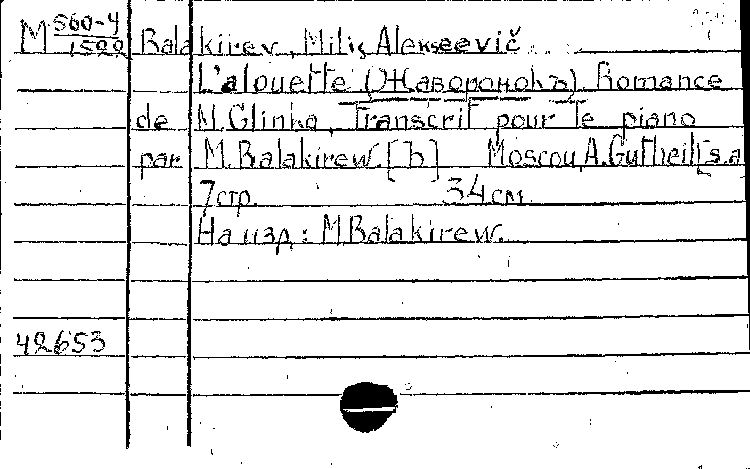 M 560-4/1522 Balakirev, Milij Alekseevič
L'alouette (Жаворонокъ). Romance
de M. Glinka, Transcrit pour le piano
par M. Balakirew. [Ъ] Moscou, A. Gutheil [s.a
7 стр. 34 см
На изд: M. Balakirew.
42653